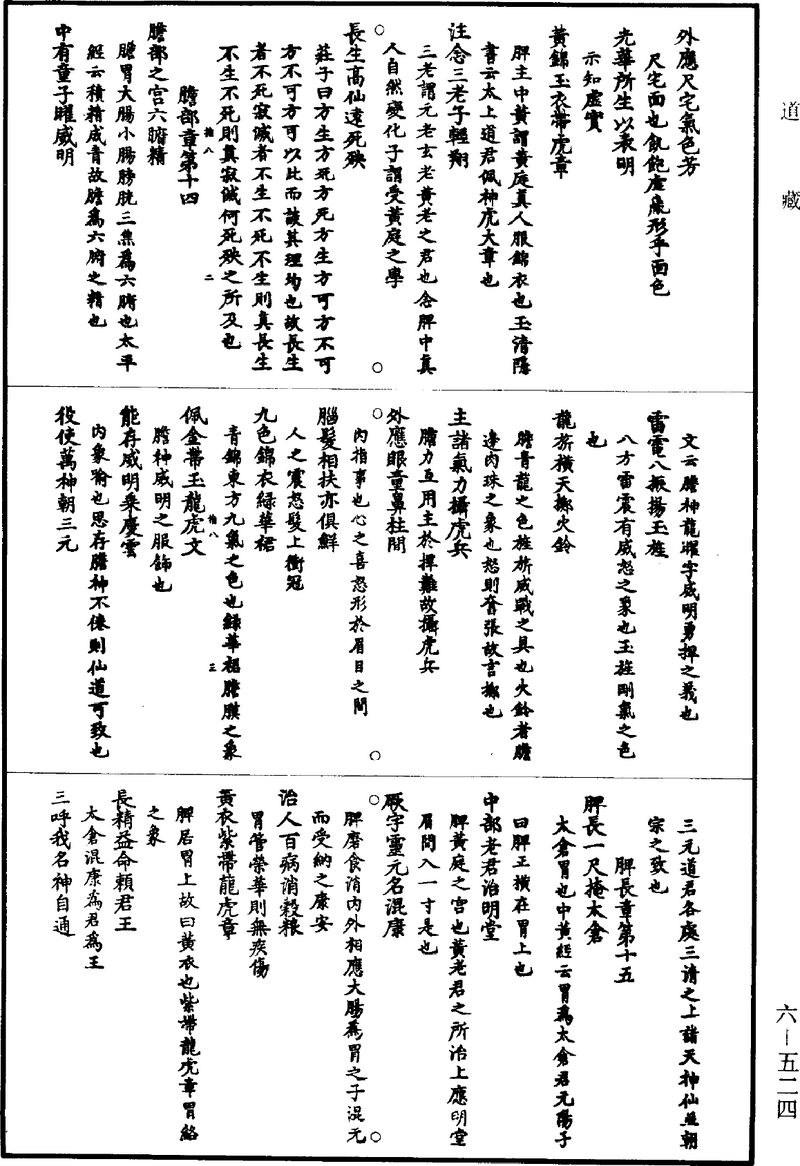 道藏
外應尺宅氣色芳
尺宅面也飢飽虛羸形乎面色
光華所生以表明
示知虛實
黃錦玉衣帶虎章
脾主中黃謂黃庭真人服錦衣也玉清隱
書云太上道君佩神虎大章也
注念三老子輕翔
三老謂元老玄老黃老之君也念脾中真
人自然變化子謂受黃庭之學
長生高仙遠死殃
莊子曰方生方死方死方生方可方不可
方不可方可以此而談其理均也故長生
者不死寂滅者不生不死不生則真長生
不生不死則真寂滅何死殃之所及也
拾八 二
膽部章第十四
膽部之宮六腑精
膽胃大腸小腸膀胱三焦為六腑也太平
經云積精成青故膽為六腑之精也
中有童子曜威明
文云膽神龍曜字威明勇捍之義也
雷電八振揚玉旌
八方雷震有威怒之象也玉旌剛氣之色
也
龍旂橫天擲火鈴
膽青龍之色旌旂威戰之具也火鈴者膽
邊肉珠之象也怒則奮張故言擲也
主諸氣力攝虎兵
膽力互用主於捍難故攝虎兵
外應眼童鼻柱間
內指事也心之喜怒形於眉目之間
腦髮相扶亦俱鮮
人之震怒髮上衝冠
九色錦衣綠華裙
青錦東方九氣之色也綠華裙膽膜之象
拾八 三
佩金帶玉龍虎文
膽神威明之服飾也
能存威明乘慶雲
內象喻也思存膽神不倦則仙道可致也
役使萬神朝三元
三元道君各處三清之上諸天神仙並朝
宗之致也
脾長章第十五
脾長一尺掩太倉
太倉胃也中黃經云胃為太倉君元陽子
曰脾正橫在胃上也
中部老君治明堂
脾黃庭之宮也黃老君之所治上應明堂
眉間入一寸是也
厥字靈元名混康
脾磨食消內外相應大腸為胃之子混元
而受納之康安
治人百病消穀粮
胃管榮華則無疾傷
黃衣紫帶龍虎章
脾居胃上故曰黃衣也紫帶龍虎章胃絡
之象
長精益命賴君王
太倉混康為君為王
三呼我名神自通
六－五二四